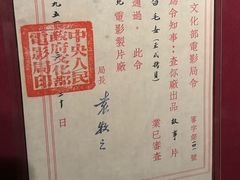 文化部電影局令
審字第
號
為令知事：查你廠出品故事片
毛女(正式拷貝)業已審查
通過。此令
北電影製片廠
局長
袁牧之
中央人民
政府文化部
電影局印
九五
十日